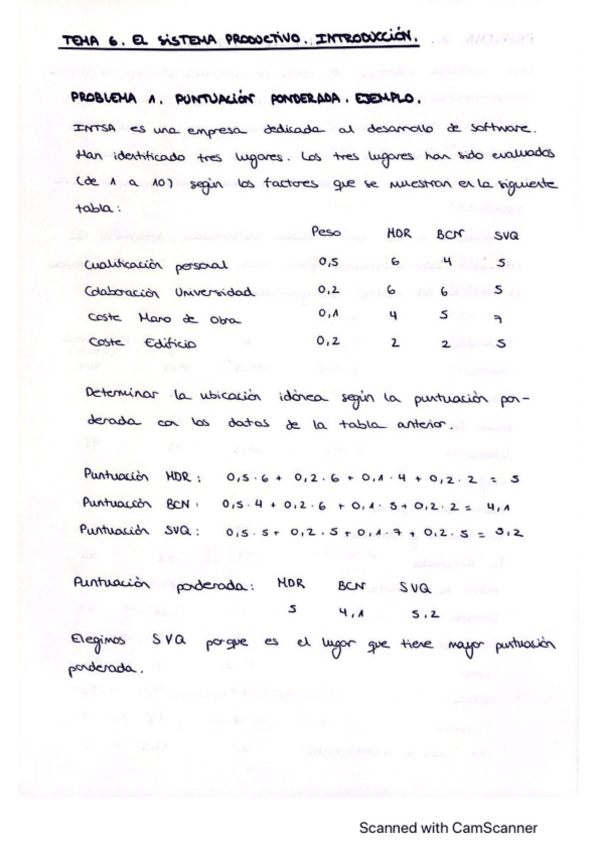 TEMA 6. EL SISTEMA PRODUCTIVO. INTRODUCCIÓN.
PROBLEMA 1. PUNTUACIÓN PONDERADA. EJEMPLO.
INTSA es una empresa dedicada al desarrollo de software.
Han identificado tres lugares. Los tres lugares han sido evaluados
(de 1 a 10) según los factores que se muestran en la siguiente
tabla:
Peso MDR BCN SVQ
Cualificación personal 0,5 6 4 5
Colaboración Universidad 0,2 6 6 5
Coste Mano de Obra 0,1 4 5 7
Coste Edificio 0,2 2 2 5
Determinar la ubicación idónea según la puntuación pon-
derada con los datos de la tabla anterior.
Puntuación MDR: 0,5·6 + 0,2·6 + 0,1·4 + 0,2·2 = 5
Puntuación BCN: 0,5·4 + 0,2·6 + 0,1·5 + 0,2·2 = 4,1
Puntuación SVQ: 0,5·5 + 0,2·5 + 0,1·7 + 0,2·5 = 5,2
Puntuación ponderada: MDR BCN SVQ
5 4,1 5,2
Elegimos SVQ porque es el lugar que tiene mayor puntuación
ponderada.
Scanned with CamScanner